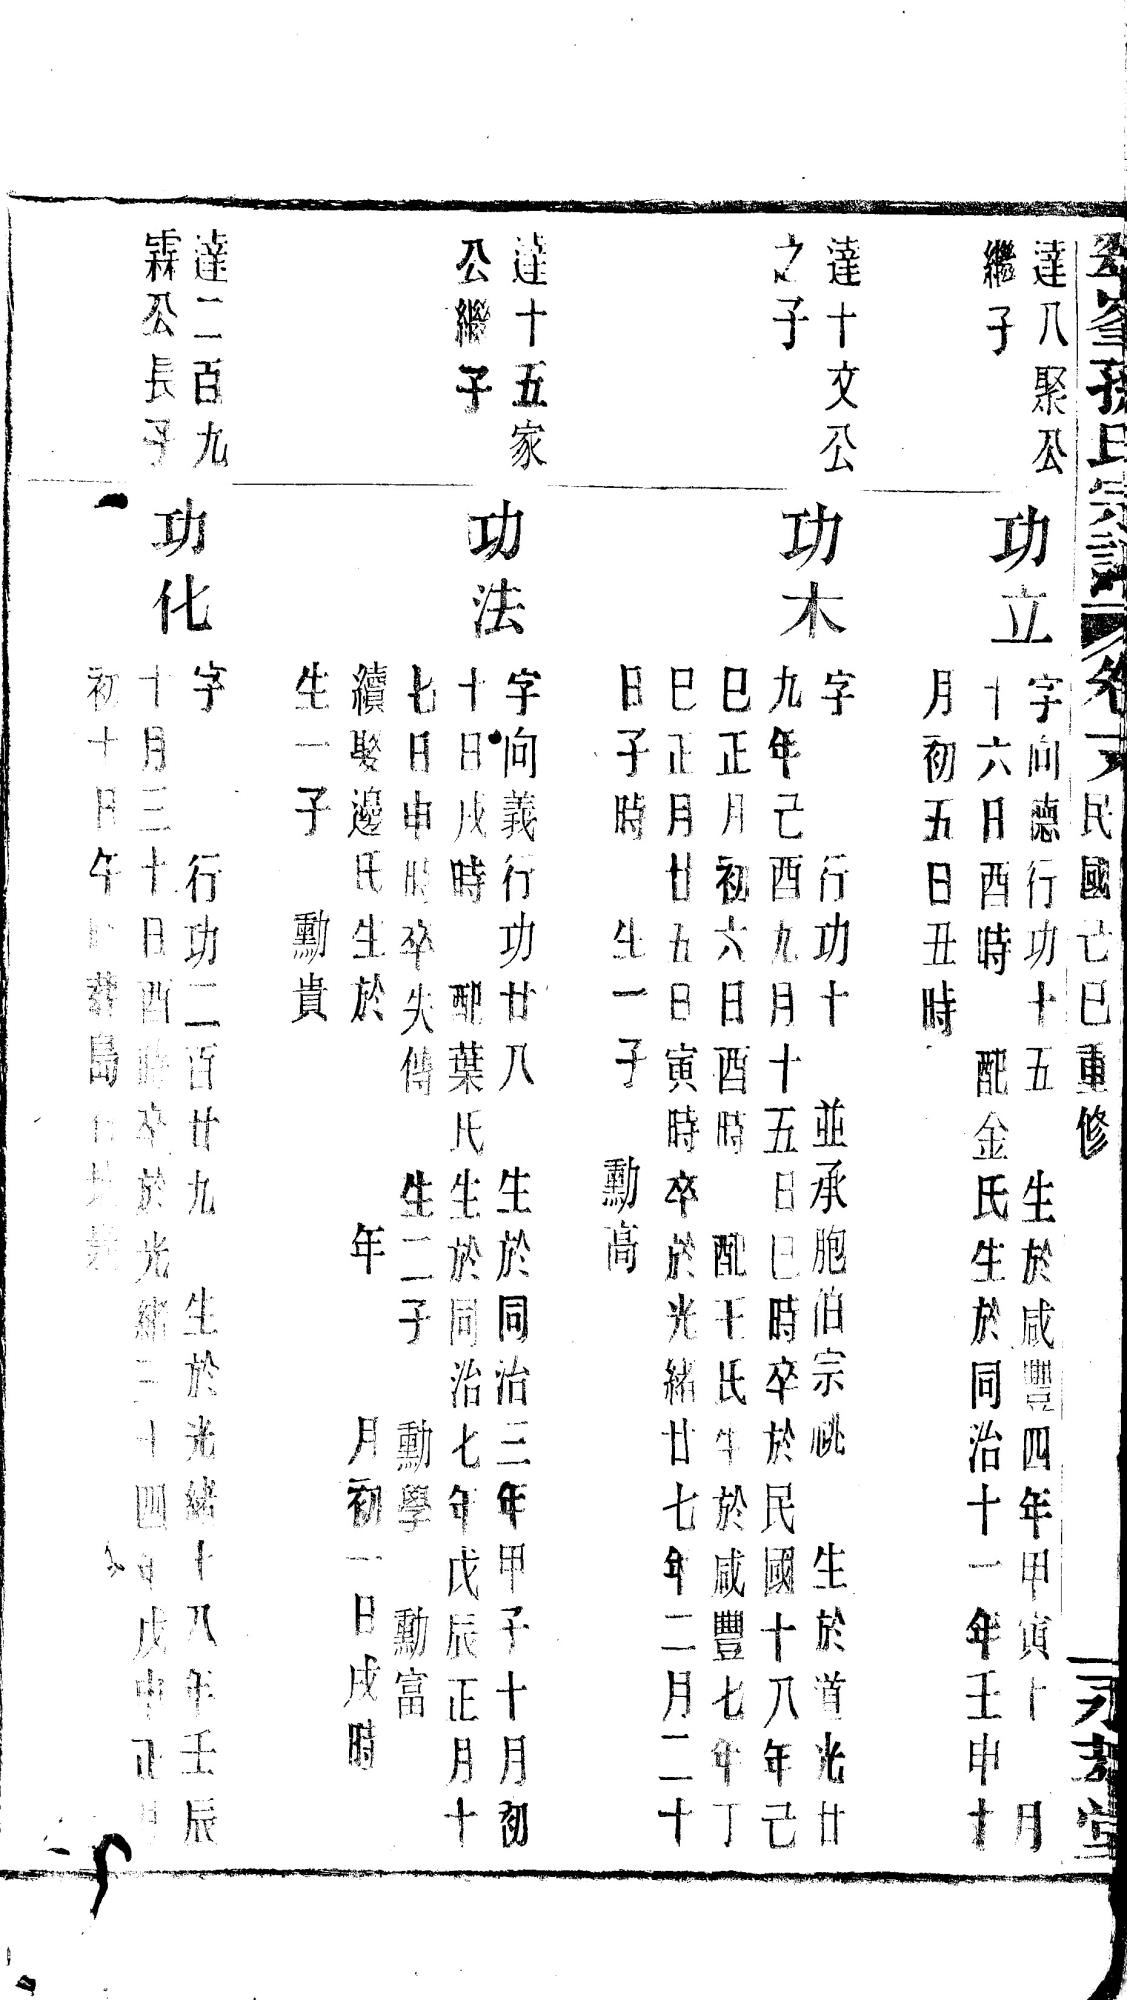 峯孫氏宗譜 卷 民國己巳重修 永 堂
達八聚公
繼子
功立
字向德行功十五 生於咸豐四年甲寅十月
十六日酉時 配金氏生於同治十一年壬申十
月初五日丑時
達十文公
之子
功木
字 行功十 並承胞伯宗祧 生於道光廿
九年己酉九月十五日巳時卒於民國十八年己
巳正月初六日酉時 配王氏生於咸豐七年丁
巳正月廿五日寅時卒於光緒廿七年二月二十
日子時 生一子 勳高
達十五家
公繼子
功法
字向義行功廿八 生於同治三年甲子十月初
十日戌時 配葉氏生於同治七年戊辰正月十
七日申時卒失傳 生二子 勳學 勳富
續娶邊氏生於 年 月初一日戌時
生一子 勳貴
達二百九
霖公長子
功化
字 行功二百廿九 生於光緒十八年壬辰
十月三十日酉時卒於光緒三十四年戊申正月
初十日午時葬島